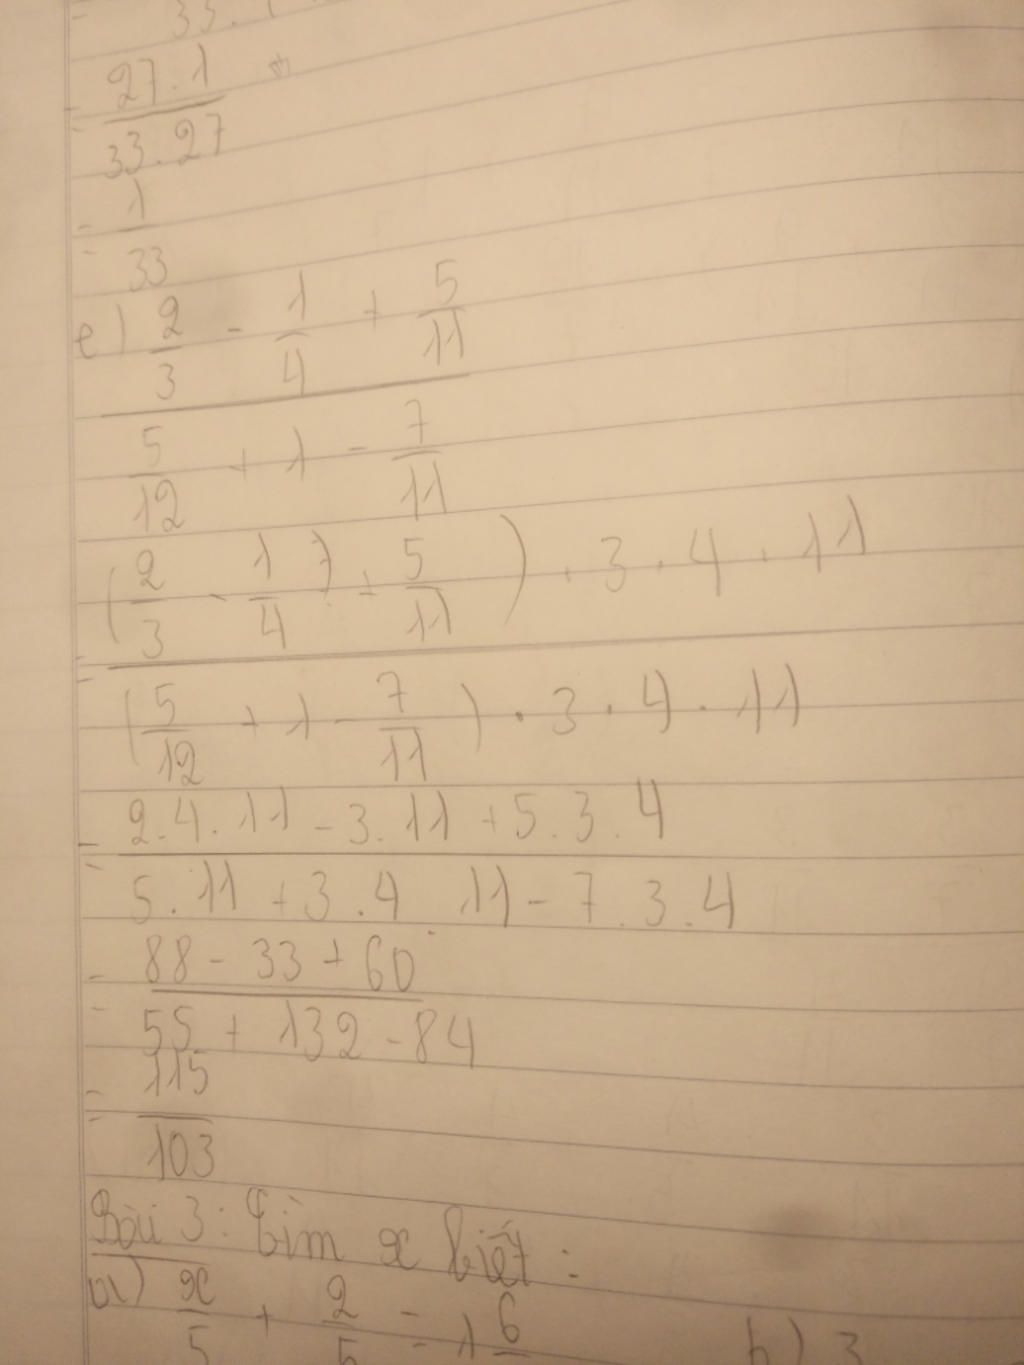 = 33.
= 27.1 / 33.27
= 1 / 33
e) 2/3 - 1/4 + 5/11
5/12 + 1 - 7/11
= (2/3 - 1/4) + 5/11) . 3 . 4 . 11
(5/12 + 1 - 7/11) . 3 . 4 . 11
= 2.4.11 - 3.11 + 5.3.4
5.11 + 3.4 11 - 7.3.4
= 88 - 33 + 60
55 + 132 - 84
= 115
103
Bài 3: Tìm x biết:
a) x/5 + 2/5 = 1 6 b) 3